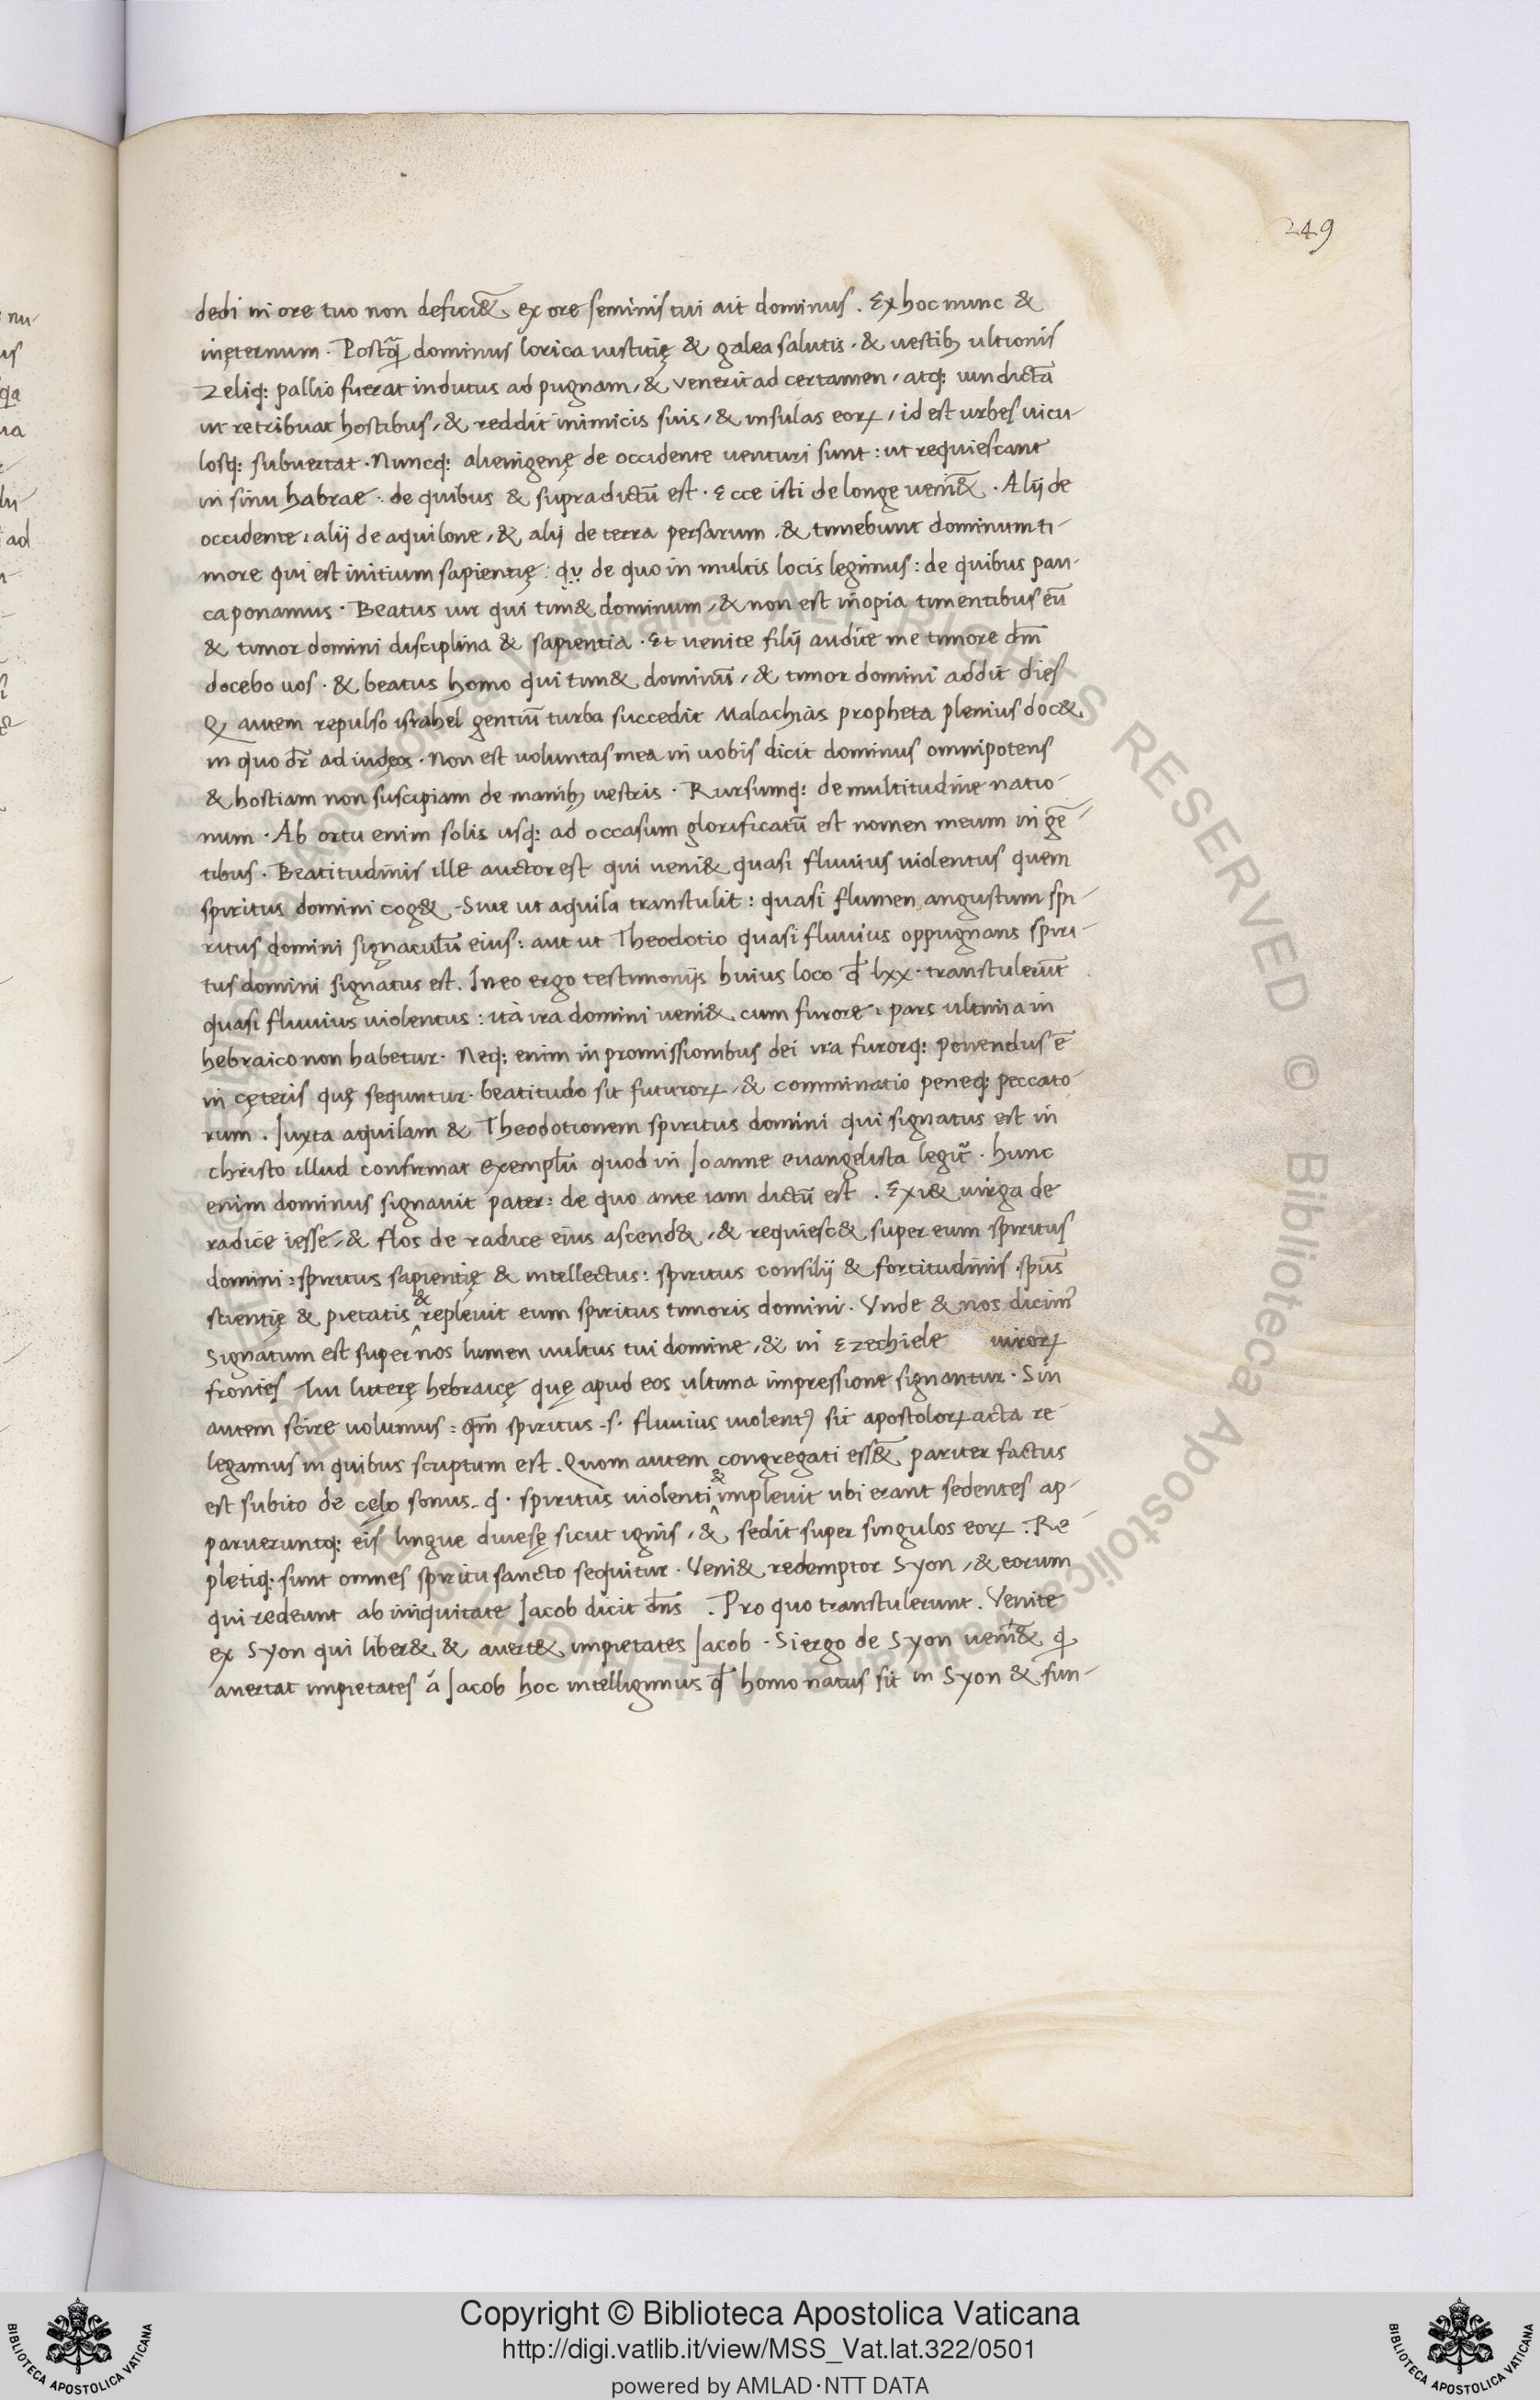 249
dedi in ore tuo non defici&̄ ex ore seminis tui ait dominus . Ex hoc nunc &
inęternum . Postq̃ dominus lorica iustitię & galea salutis , & uestibꝫ ultionis
zeliq: pallio fuerat indutus ad pugnam , & venerit ad certamen , atq: uindictā
ut retribuat hostibus , & reddit inimicis suis , & insulas eoꝝ , id est urbes uicu-
losq: subuertat . Nuncq: alienigenę de occidente uenturi sunt : ut requiescant
in sinu habrae . de quibus & supradictū est . Ecce isti de longe ueni&̄ . Alij de
occidente , alij de aquilone , & alij de terra persarum . & timebunt dominum ti-
more qui est initium sapientię : de quo in multis locis legimus : de quibus pau-
ca ponamus . Beatus uir qui tim& dominum , & non est inopia timentibus eū
& timor domini disciplina & sapientia . Et uenite filij audite me timore dm̄
docebo uos . & beatus homo qui tim& dominū , & timor domini addit dies
Q autem repulso israhel gentiū turba succedit Malachias propheta plenius doc&
in quo dr̄ ad iudeos . Non est uoluntas mea in uobis dicit dominus omnipotens
& hostiam non suscipiam de manibꝫ uestris . Rursumq: de multitudine natio-
num . Ab ortu enim solis usq: ad occasum glorificatū est nomen meum in gē-
tibus . Beatitudinis ille auctor est qui ueni& quasi fluuius uiolentus quem
spiritus domini cog& . Siue ut aquila transtulit : quasi flumen angustum spi-
ritus domini signaculū eius : aut ut Theodotio quasi fluuius oppugnans spiri-
tus domini signatus est . In eo ergo testimonijs huius loco qđ lxx . transtulerūt
quasi fluuius uiolentus : ita ira domini ueni& cum furore : pars ultima in
hebraico non habetur . Neq: enim in promissionibus dei ira furorq: ponendus ē
in cęteris quę sequntur . beatitudo sit futuroꝝ , & comminatio peneq: peccato-
rum . Juxta aquilam & Theodotionem spiritus domini qui signatus est in
christo illud confirmat exemplū quod in Joanne euangelista legit̃ . hunc
enim dominus signauit pater : de quo ante iam dictū est . Exi& uirga de
radice iesse , & flos de radice eius ascend& , & requiesc& super eum spiritus
domini : spiritus sapientię & intellectus : spiritus consilij & fortitudinis . spūs
scientię & pietatis & repleuit eum spiritus timoris domini . Vnde & nos dicim⁹
Signatum est super nos lumen uultus tui domine , & in Ezechiele uiroꝝ
frontes tui litterę hebraicę quę apud eos ultima impressione signantur . Sin
autem scire uolumus : qm̄ spiritus .s. fluuius uiolent⁹ sit apostoloꝝ acta re
legamus in quibus scriptum est . Quom autem congregati ess&̄ pariter factus
est subito de cęlo sonus . q . spiritus uiolenti & impleuit ubi erant sedentes ap-
parueruntq: eis lingue diuesę sicut ignis , & sedit super singulos eoꝝ . Re
pletiq: sunt omnes spiritu sancto sequitur . Veni& redemptor Syon , & eorum
qui redeunt ab iniquitate Jacob dicit dn̄s . Pro quo transtulerunt . Venite
ex Syon qui liber& & auert& impietates Jacob . Si ergo de Syon ueni&̄ q
auertat impietates á Jacob hoc intelligimus qđ homo natus sit in Syon & fun-
Copyright © Biblioteca Apostolica Vaticana
http://digi.vatlib.it/view/MSS_Vat.lat.322/0501
powered by AMLAD·NTT DATA